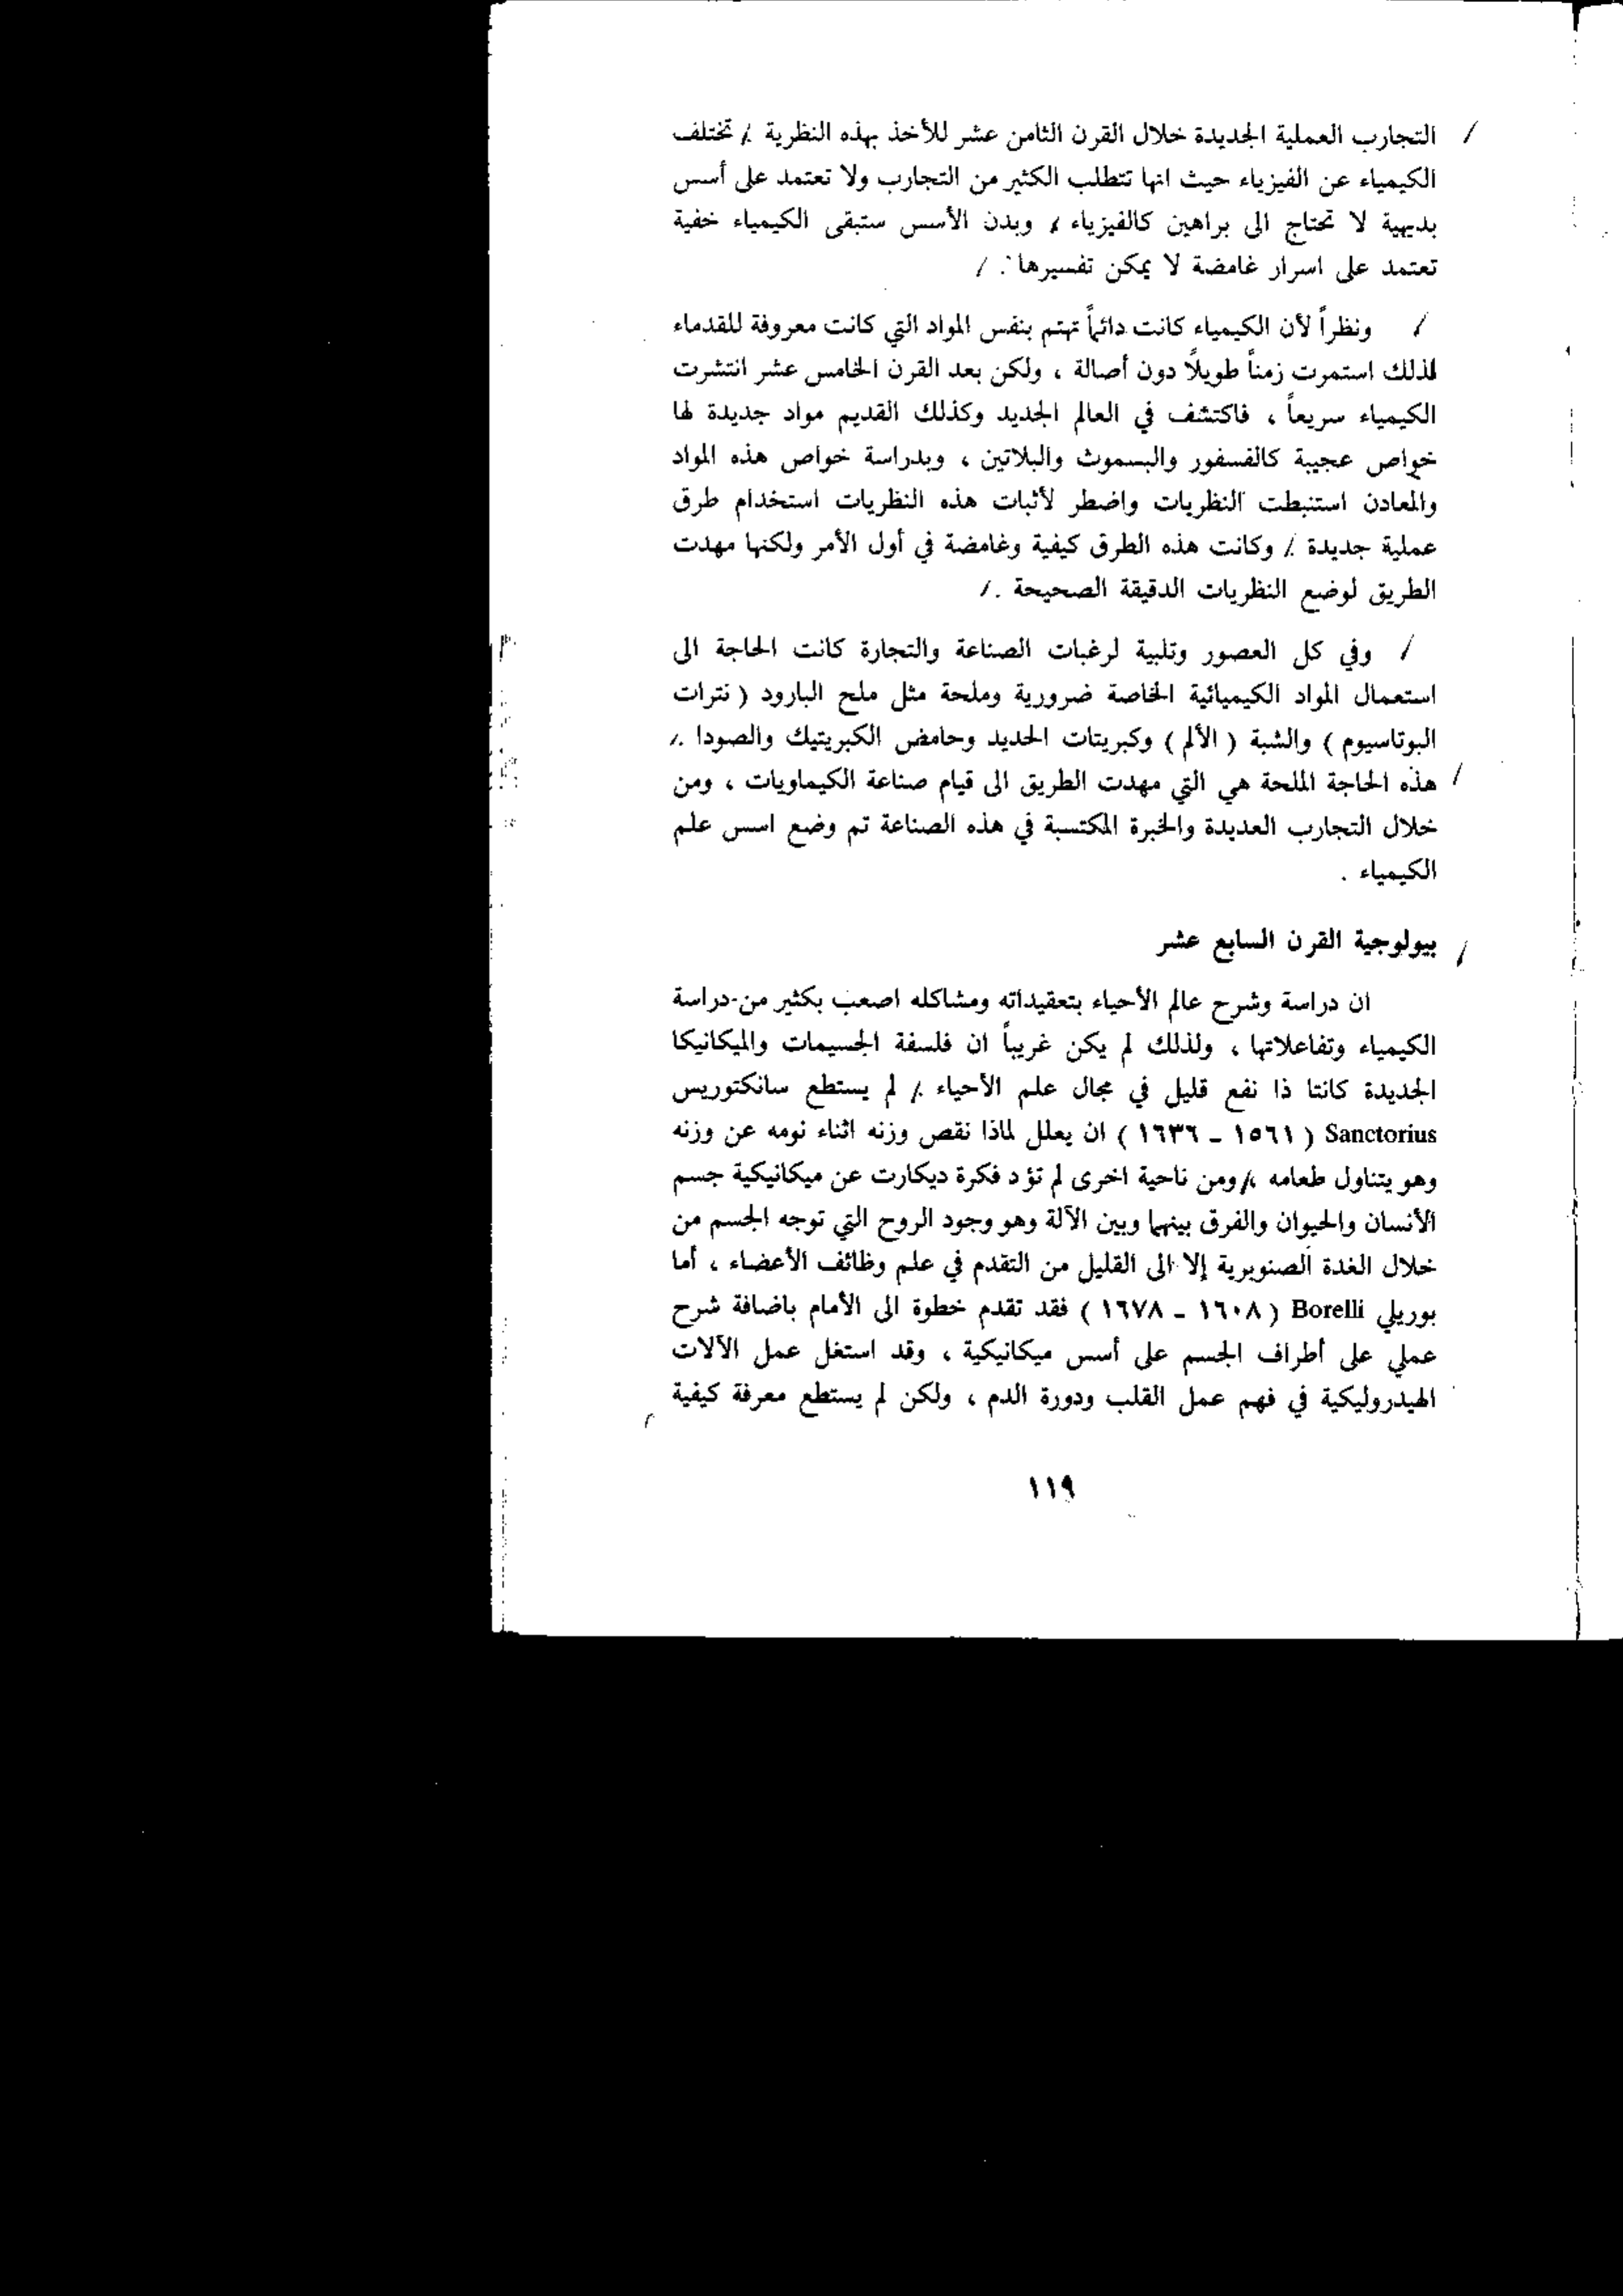 التجارب العملية الجديدة خلال القرن الثامن عشر للأخذ بهذه النظرية . تختلف
الكيمياء عن الفيزياء حيث انها تتطلب الكثير من التجارب ولا تعتمد على أسس
بديهية لا تحتاج الى براهين كالفيزياء ، وبدن الأسس ستبقى الكيمياء خفية
تعتمد على اسرار غامضة لا يمكن تفسيرها .
ونظراً لأن الكيمياء كانت دائماً تهتم بنفس المواد التي كانت معروفة للقدماء
لذلك استمرت زمناً طويلاً دون أصالة ، ولكن بعد القرن الخامس عشر انتشرت
الكيمياء سريعاً ، فاكتشف في العالم الجديد وكذلك القديم مواد جديدة لها
خواص عجيبة كالفسفور والبسموث والبلاتين ، وبدراسة خواص هذه المواد
والمعادن استنبطت النظريات واضطر لأثبات هذه النظريات استخدام طرق
عملية جديدة . وكانت هذه الطرق كيفية وغامضة في أول الأمر ولكنها مهدت
الطريق لوضع النظريات الدقيقة الصحيحة .
وفي كل العصور وتلبية لرغبات الصناعة والتجارة كانت الحاجة الى
استعمال المواد الكيميائية الخاصة ضرورية وملحة مثل ملح البارود ( نترات
البوتاسيوم ) والشبة ( الألم ) وكبريتات الحديد وحامض الكبريتيك والصودا .
هذه الحاجة الملحة هي التي مهدت الطريق الى قيام صناعة الكيماويات ، ومن
خلال التجارب العديدة والخبرة المكتسبة في هذه الصناعة تم وضع اسس علم
الكيمياء .
بيولوجية القرن السابع عشر
ان دراسة وشرح عالم الأحياء بتعقيداته ومشاكله اصعب بكثير من دراسة
الكيمياء وتفاعلاتها ، ولذلك لم يكن غريباً ان فلسفة الجسيمات والميكانيكا
الجديدة كانتا ذا نفع قليل في مجال علم الأحياء . لم يستطع سانكتوريس
Sanctorius ( ١٥٦١ - ١٦٣٦ ) ان يعلل لماذا نقص وزنه اثناء نومه عن وزنه
وهو يتناول طعامه ، ومن ناحية اخرى لم تؤد فكرة ديكارت عن ميكانيكية جسم
الأنسان والحيوان والفرق بينهما وبين الآلة وهو وجود الروح التي توجه الجسم من
خلال الغدة الصنوبرية إلا الى القليل من التقدم في علم وظائف الأعضاء ، أما
بوريلي Borelli ( ١٦٠٨ - ١٦٧٨ ) فقد تقدم خطوة الى الأمام باضافة شرح
عملي على أطراف الجسم على أسس ميكانيكية ، وقد استغل عمل الآلات
الهيدروليكية في فهم عمل القلب ودورة الدم ، ولكن لم يستطع معرفة كيفية
١١٩